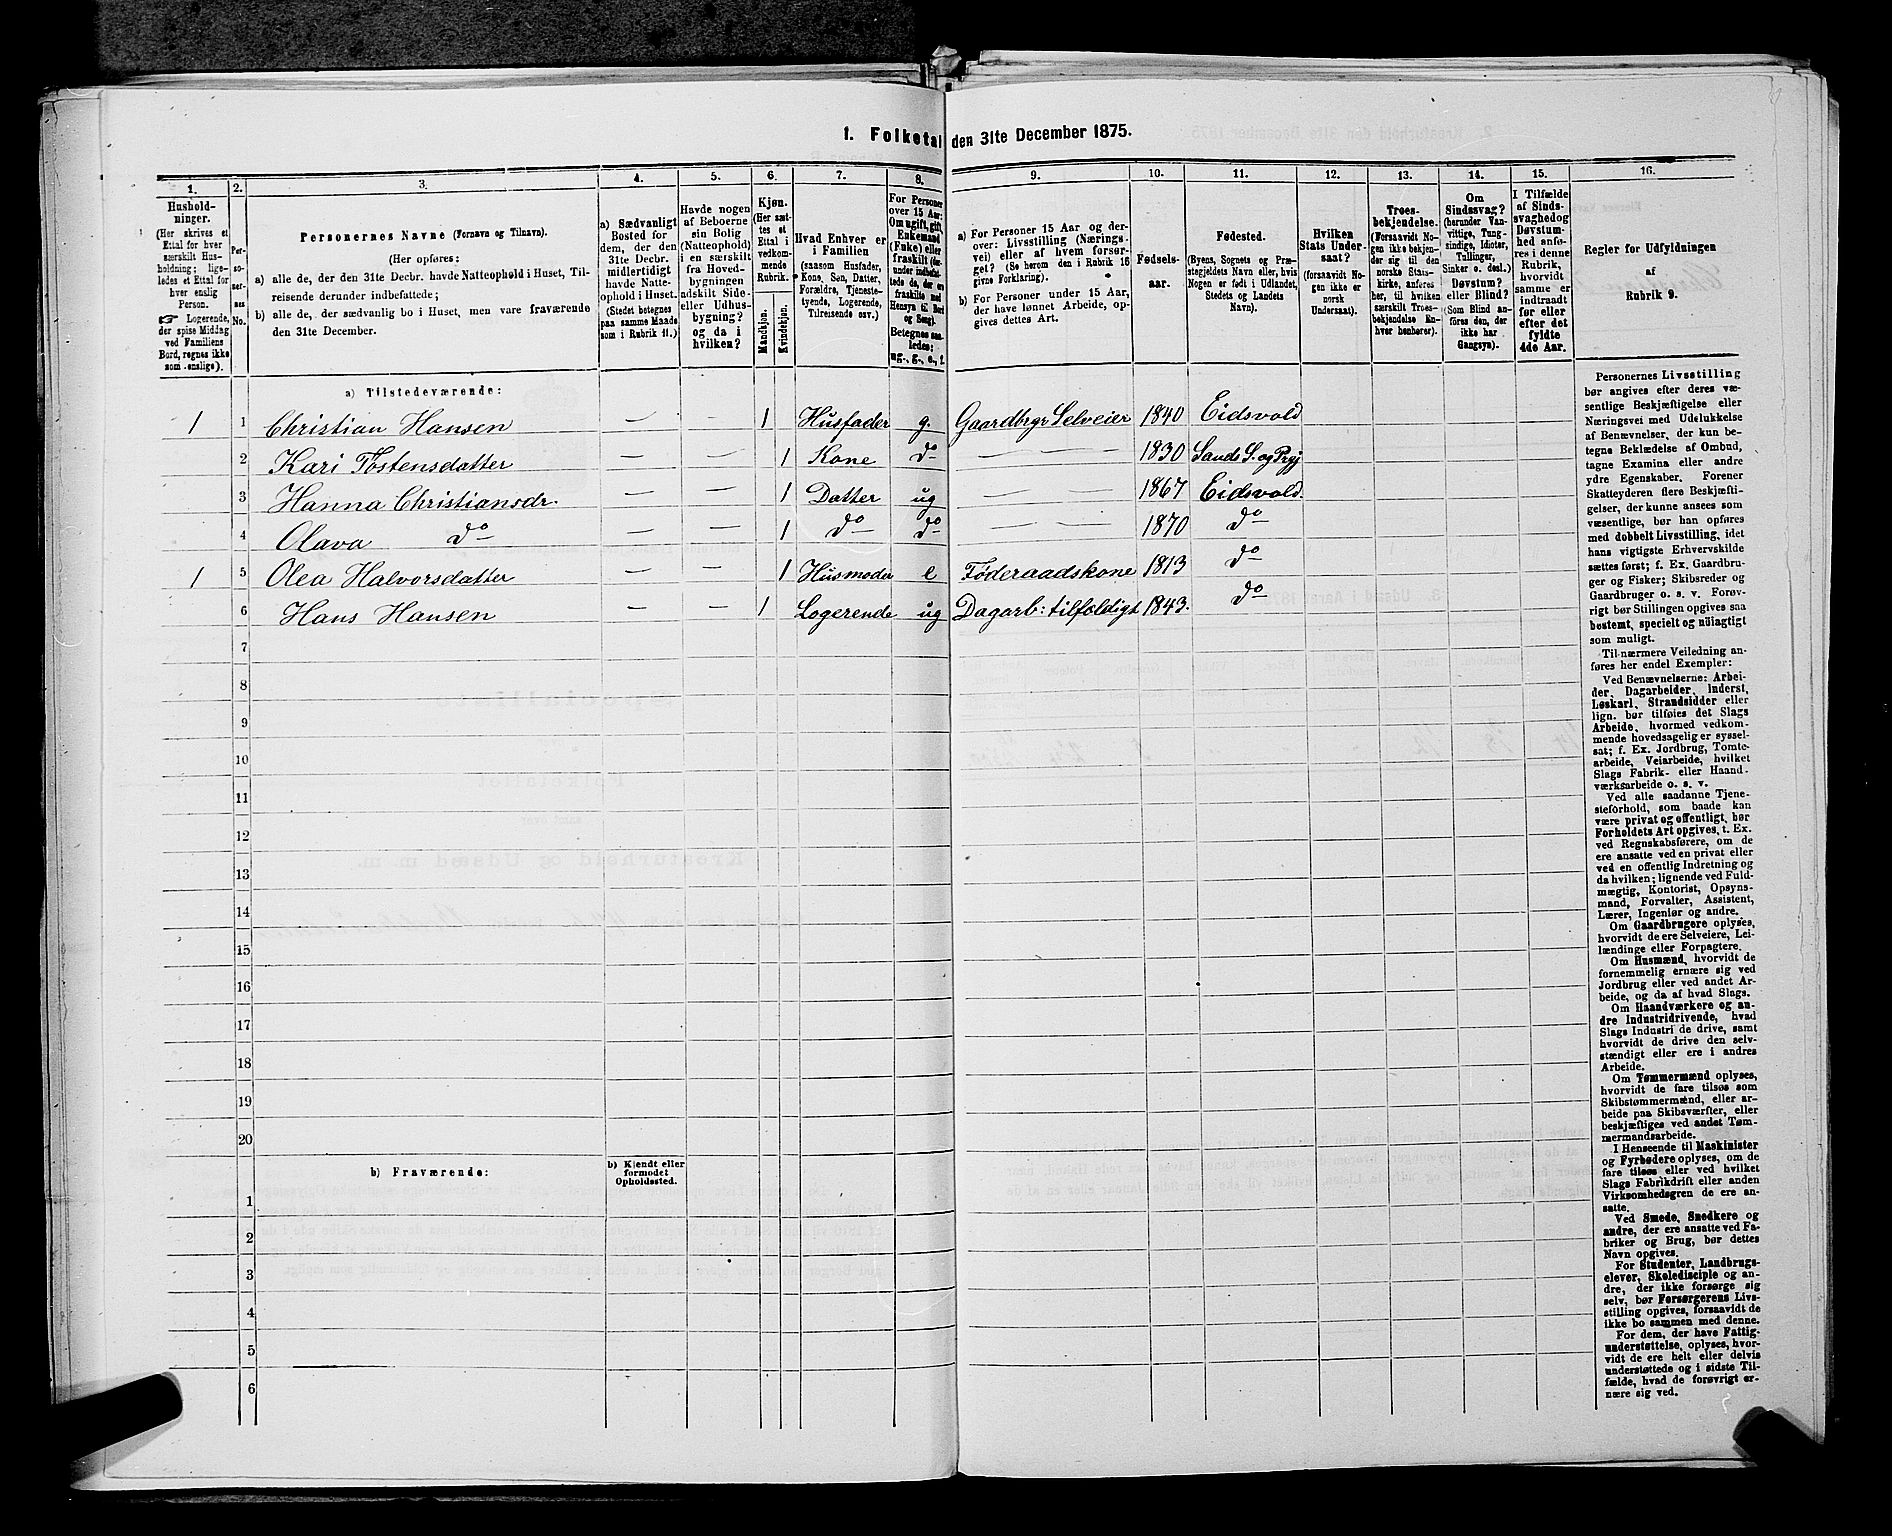 1. Folketal den 31te December 1875.
1. 2. 3. 4. 5. 6. 7. 8. 9. 10. 11. 12. 13. 14. 15. 16.
Hushold-
ninger.
(Her skrives et
Ettal for hver
særskilt Hus-
holdning; lige-
ledes et Ettal for
hver enslig
Person.
☞ Logerende,
der spise Middag
ved Familiens
Bord, regnes ikke
som enslige).
Per-
so-
ner-
nes
No.
Personernes Navne (Fornavn og Tilnavn).
(Her opføres:
a) alle de, der den 31te Decbr. havde Natteophold i Huset, Til-
reisende derunder indbefattede;
b) alle de, der sædvanlig bo i Huset, men vare fraværende
den 31te December.
a) Sædvanligt
Bosted for
dem, der den
31te Decbr.
midlertidigt
havde Natte-
ophold i Huset.
(Stedet betegnes
paa samme Maade
som i Rubrik 11.)
Havde nogen
af Beboerne
sin Bolig
(Natteophold)
i en særskilt
fra Hoved-
bygningen
adskilt Side-
eller Udhus-
bygning?
og da i
hvilken?
Kjøn.
(Her sæt-
tes et
Ettal i
vedkom-
mende
Rubrik.)
Mandkjøn.
Kvindekjøn.
Hvad Enhver er
i Familien
(saasom Husfader,
Kone, Søn, Datter,
Forældre, Tjeneste-
tyende, Logerende,
Tilreisende osv.)
For Personer
over 15 Aar:
Om ugift, gift,
Enkemand
(Enke) eller
fraskilt (der-
under indbefat-
tede de, der ere
fraskilte med
Hensyn til Bord
og Seng).
Betegnes saa-
ledes:
ug., g., e., f.
a) For Personer 15 Aar og der-
over: Livsstilling (Nærings-
vei) eller af hvem forsør-
get? (Se herom den i Rubrik 16
givne Forklaring).
b) For Personer under 15 Aar,
der have lønnet Arbeide, op-
gives dettes Art.
Fødsels-
aar.
Fødested.
(Byens, Sognets og Præ-
stegjeldets Navn eller, hvis
Nogen er født i Udlandet,
Stedets og Landets
Navn).
Hvilken
Stats Under-
saat?
(forsaavidt No-
gen ikke er
norsk
Undersaat).
Troes-
bekjendelse.
(Forsaavidt No-
gen ikke bekjen-
der sig til den
norske Stats-
kirke, anføres
her, til hvilken
særskilt Troes-
bekjendelse En-
hver henhører).
Om
Sindssvag?
(herunder Van-
vittige, Tung-
sindige, Idioter,
Tullinger,
Sinker o. desl.)
Døvstum?
eller Blind?
(Som Blind an-
føres den, der
ikke har
Gangsyn).
I Tilfælde
af Sinds-
svaghed og
Døvstum-
hed anfø-
res i denne
Rubrik,
hvorvidt
samme er
indtraadt
før eller
efter det
fyldte
4de Aar.
Regler for Udfyldningen
af
Rubrik 9.
a) Tilstedeværende:
1 1 Christian Hansen — — 1 Husfader g. Gaardbrgr Selveier 1840 Eidsvold
2 Kari Tostensdatter — — 1 Kone do — — 1830 Sands S. og Prgj
3 Hanna Christiansdr. — — 1 Datter ug — — 1867 Eidsvold
4 Olava do — — 1 do do — — 1870 do
1 5 Olea Halvorsdatter — — 1 Husmoder e Föderaadskone 1813 do
6 Hans Hansen — — 1 Logerende ug Dagarb: tilfældigt 1843. do
7
8
9
10
11
12
13
14
15
16
17
18
19
20
b) Fraværende:
b) Kjendt eller
formodet
Opholdssted.
1
2
3
4
5
6
Personernes Livsstilling
bør angives efter deres væ-
sentlige Beskjæftigelse eller
Næringsvei med Udelukkelse
af Benævnelser, der kun be-
tegne Beklædelse af Ombud,
tagne Examina eller andre
ydre Egenskaber. Forener
Skatteyderen flere Beskjæfti-
gelser, der kunne ansees som
væsentlige, bør han opføres
med dobbelt Livsstilling, idet
hans vigtigste Erhvervskilde
sættes først; f. Ex. Gaardbru-
ger og Fisker; Skibsreder og
Gaardbruger o. s. v. Forøv-
rigt bør Stillingen opgives saa
bestemt, specielt og nøiagtigt
som muligt.
Til nærmere Veiledning an-
føres her endel Exempler:
Ved Benævnelserne: Arbei-
der, Dagarbeider, Inderst,
Løskarl, Strandsidder eller
lign. bør tilføies det Slags
Arbeide, hvormed vedkom-
mende hovedsagelig er syssel-
sat; f. Ex. Jordbrug, Tomte-
arbeide, Veiarbeide, hvilket
Slags Fabrik- eller Haand-
værksarbeide o. s. v.
Ved alle saadanne Tjene-
steforhold, som baade kan
være privat og offentligt, bør
Forholdets Art opgives, t. Ex.
ved Regnskabsførere, om de
ere ansatte ved en privat eller
ved en offentlig Indretning og
da hvilken; lignende ved Fuld-
mægtig, Kontorist, Opsyns-
mand, Forvalter, Assistent,
Lærer, Ingeniør og andre.
Om Gaardbrugere oplyses,
hvorvidt de ere Selveiere, Lei-
lændinge eller Forpagtere.
Om Husmænd, hvorvidt de
fornemmelig ernære sig ved
Jordbrug eller ved andet Ar-
beide, og da af hvad Slags.
Om Haandværkere og an-
dre Industridrivende, hvad
Slags Industri de drive, samt
hvorvidt de drive den selv-
stændigt eller ere i andres
Arbeide.
Om Tømmermænd oplyses,
hvorvidt de fare tilsøs som
Skibstømmermænd, eller ar-
beide paa Skibsværfter, eller
beskjæftiges ved andet Tøm-
mermandsarbeide.
I Henseende til Maskinister
og Fyrbødere oplyses, om de
fare tilsøs eller ved hvilket
Slags Fabrikdrift eller anden
Virksomhedsgren de ere an-
satte.
Ved Smede, Snedkere og
andre, der ere ansatte ved Fa-
briker og Brug, bør dettes
Navn opgives.
For Studenter, Landbrugs-
elever, Skoledisciple og an-
dre, der ikke forsørge sig
selv, bør Forsørgerens Livs-
stilling opgives, forsaavidt de
ikke bo sammen med denne.
For dem, der have Fattig-
understøttelse, oplyses, hvor-
vidt de ere helt eller delvis
understøttede og i sidste Til-
fælde, hvad de forøvrigt er-
nære sig ved.